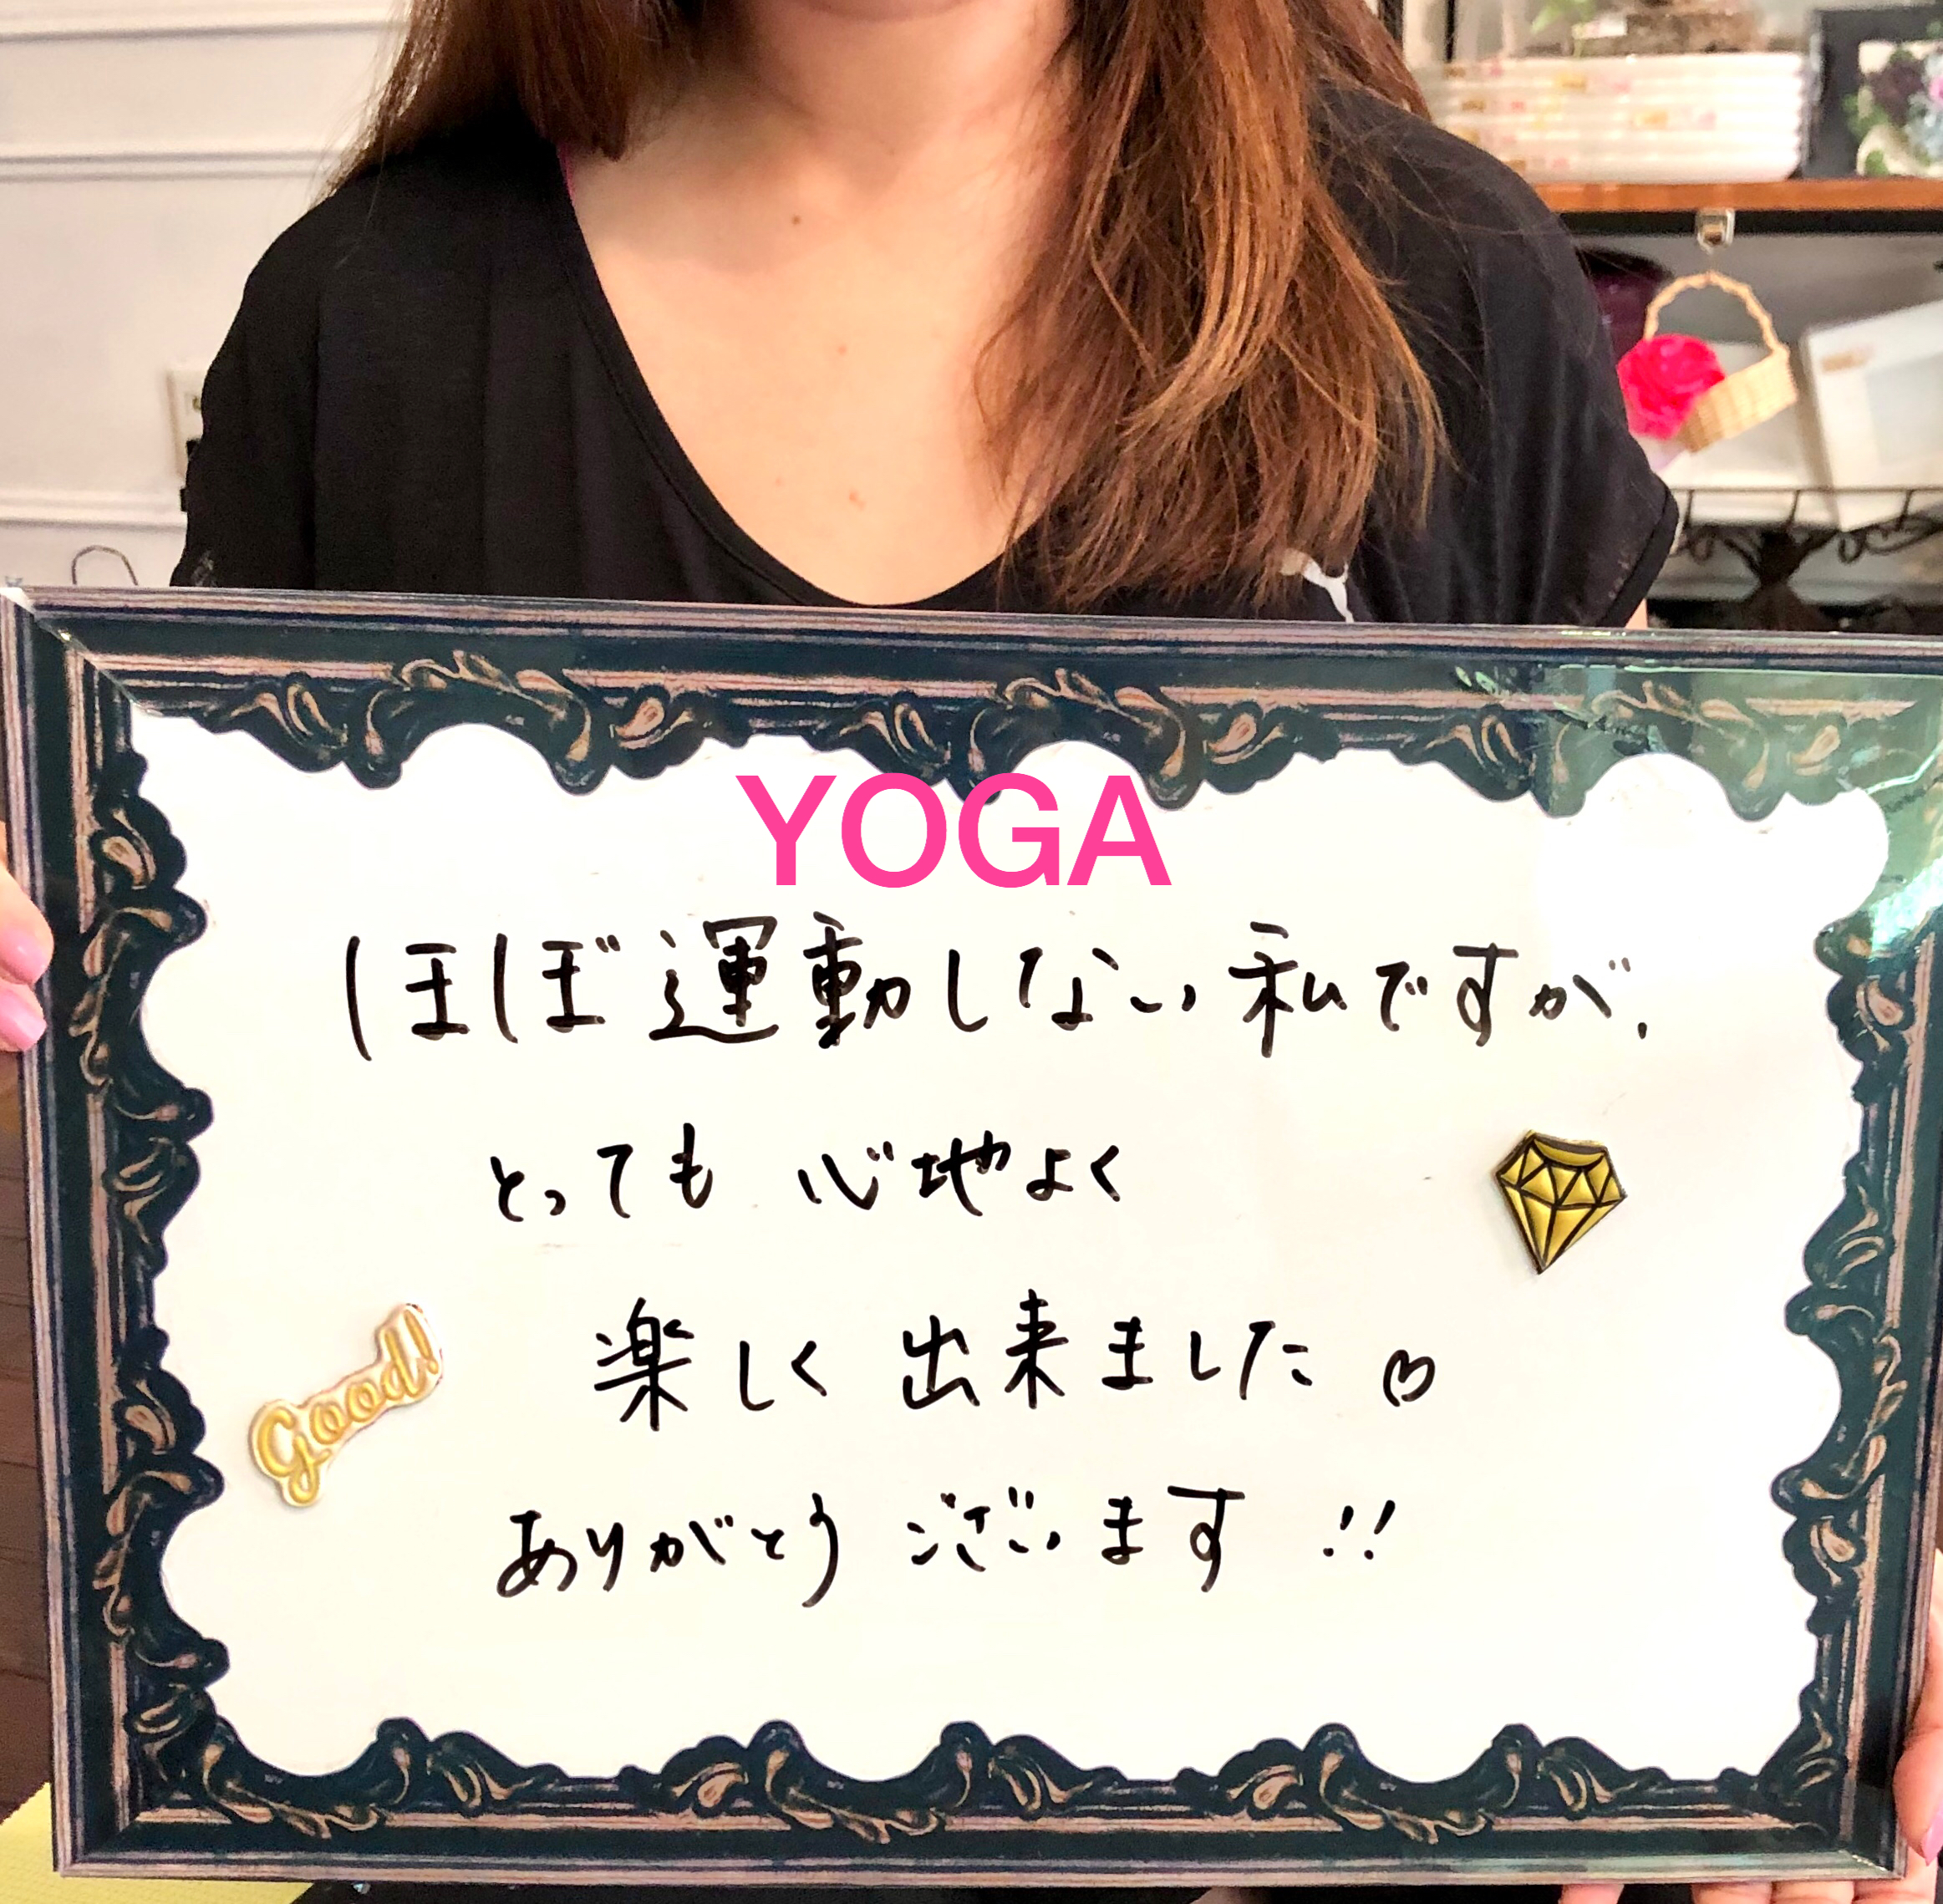 YOGA
ほぼ運動しない私ですが、
とっても 心地よく
楽しく 出来ました♡
Good!
ありがとう ございます !!